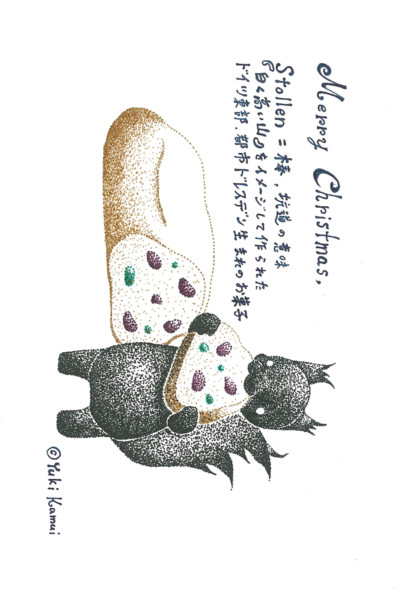 Merry Christmas,
Stollen = 棒, 坑道の意味
『白く高い山』をイメージして作られた
ドイツ東部.都市ドレスデン生まれのお菓子
©Yuki Kamui